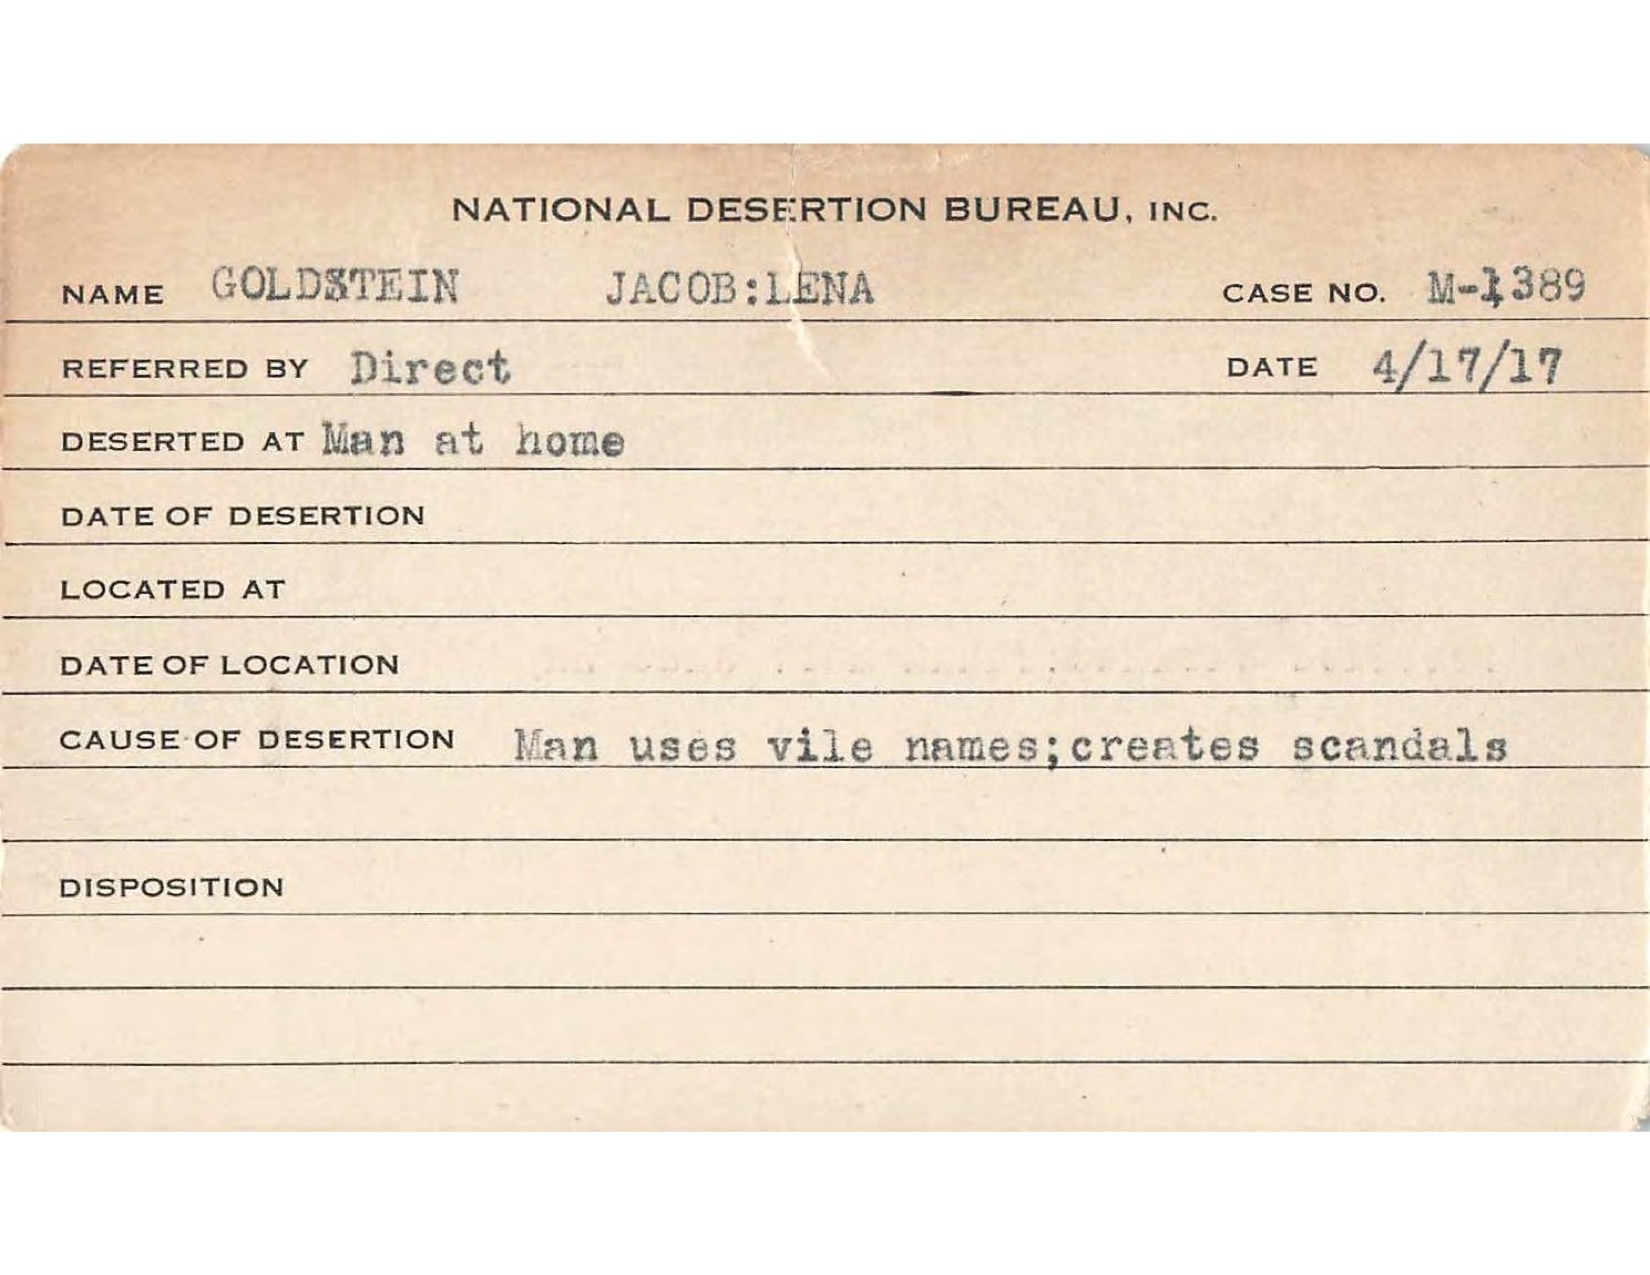 NATIONAL DESERTION BUREAU, INC.
NAME GOLDSTEIN JACOB:LENA CASE NO. M-1389
REFERRED BY Direct DATE 4/17/17
DESERTED AT Man at home
DATE OF DESERTION
LOCATED AT
DATE OF LOCATION
CAUSE OF DESERTION Man uses vile names;creates scandals
DISPOSITION